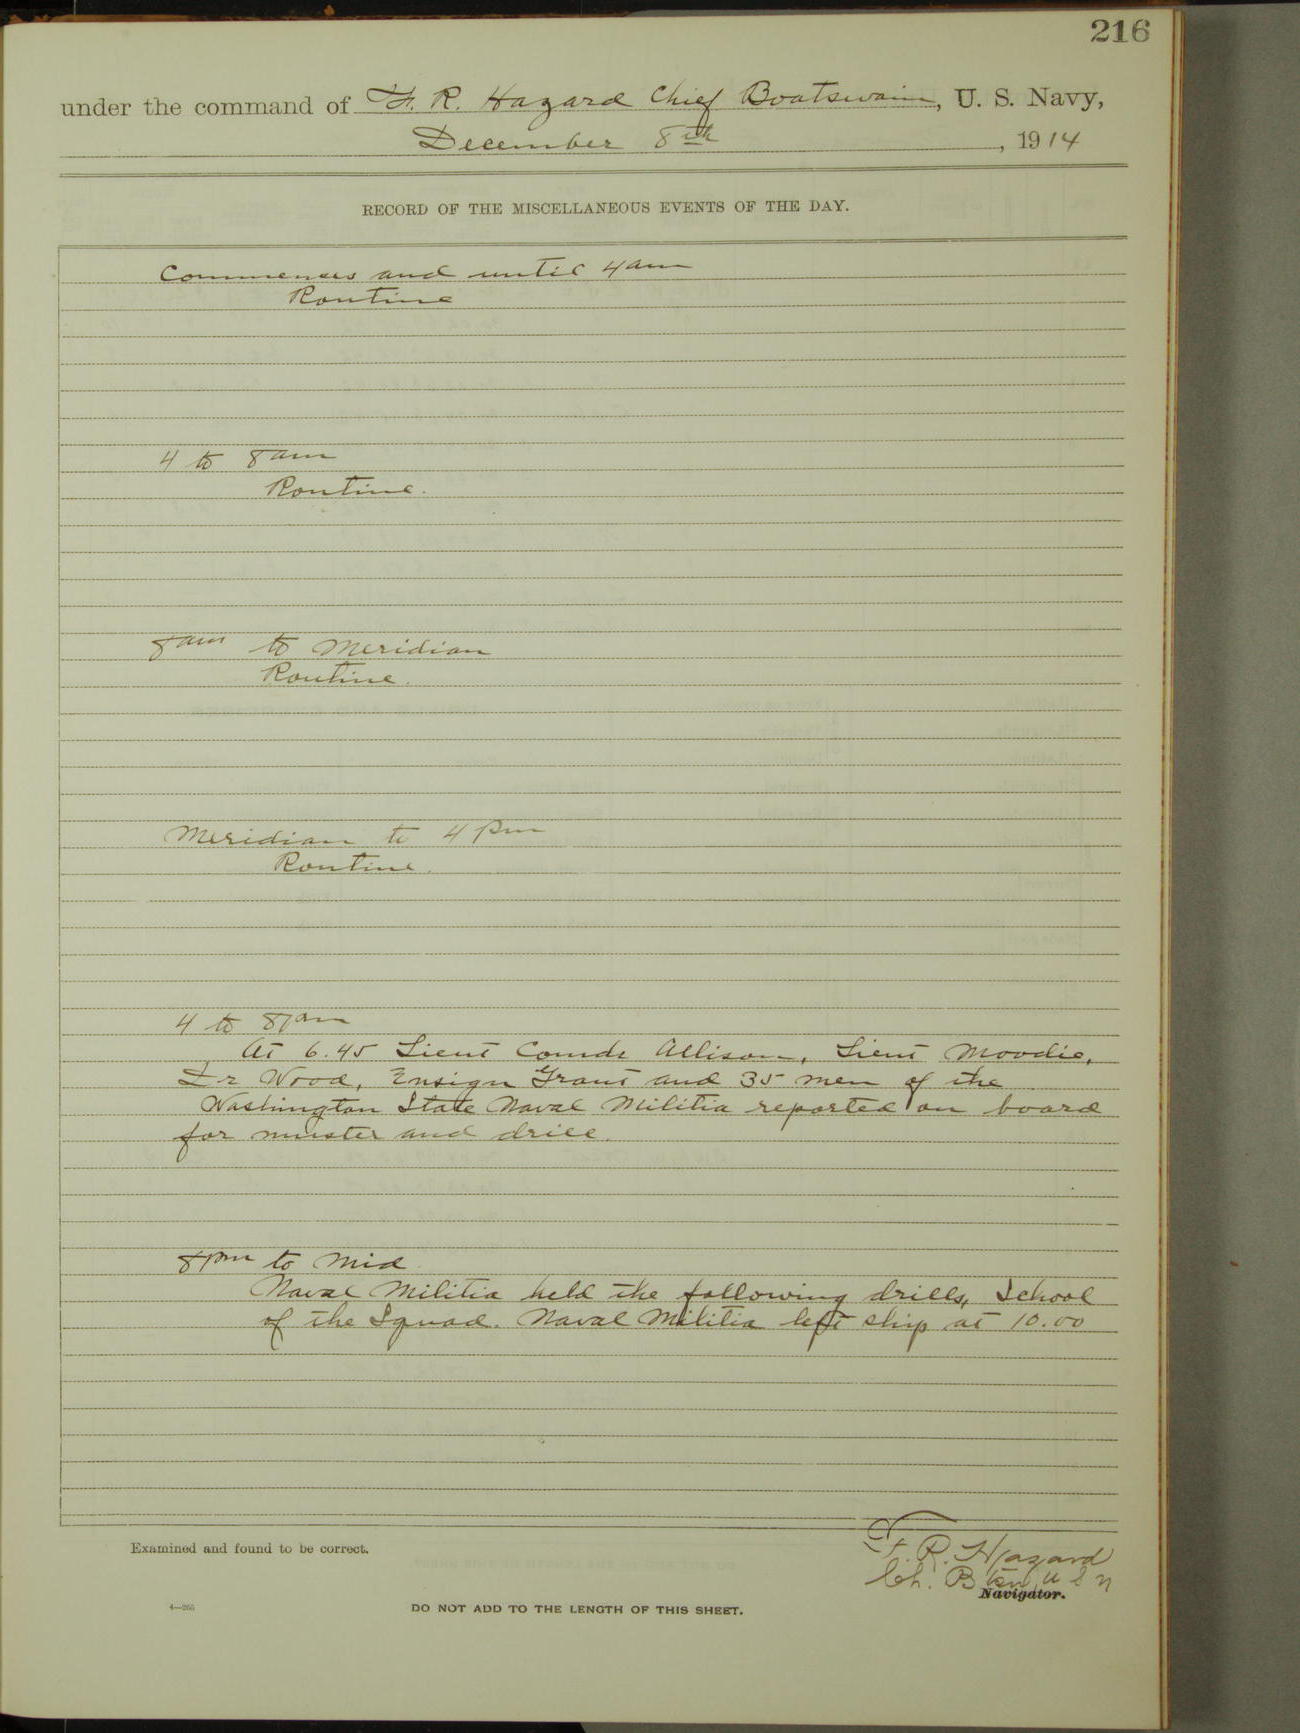 216
under the command of F. R. Hazard Chief Boatswain, U. S. Navy,
December 8th, 1914
RECORD OF THE MISCELLANEOUS EVENTS OF THE DAY.
Commences and until 4 am
Routine
4 to 8 am
Routine.
8 am to Meridian
Routine.
Meridian to 4 Pm
Routine.
4 to 8 pm
At 6.45 Lieut Comdr Allison, Lieut Moodie,
Dr Wood, Ensign Grant and 35 men of the
Washington State Naval Militia reported on board
for muster and drill.
8 pm to Mid
Naval Militia held the following drills, School
of the Squad. Naval Militia left ship at 10.00
Examined and found to be correct.
F. R. Hazard
Ch. Btsn, U S N
Navigator.
4—265
DO NOT ADD TO THE LENGTH OF THIS SHEET.